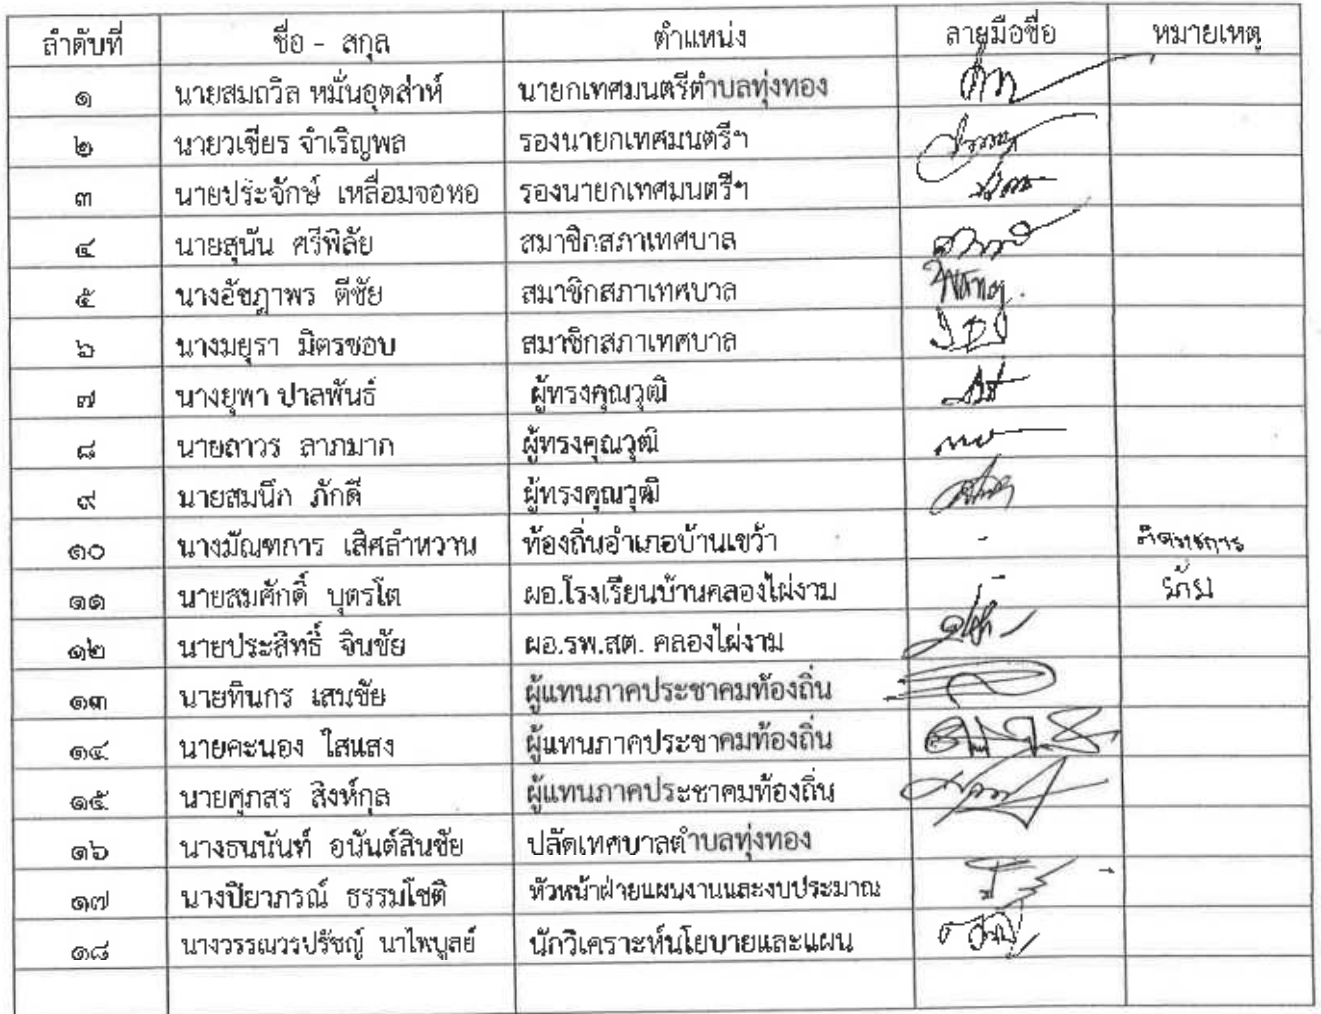 ลำดับที่ ชื่อ - สกุล ตำแหน่ง ลายมือชื่อ หมายเหตุ
๑ นายสมถวิล หมั่นอุตส่าห์ นายกเทศมนตรีตำบลทุ่งทอง
๒ นายวเชียร จำเริญพล รองนายกเทศมนตรีฯ
๓ นายประจักษ์ เหลื่อมจอหอ รองนายกเทศมนตรีฯ
๔ นายสุนัน ศรีพิลัย สมาชิกสภาเทศบาล
๕ นางอัชฎาพร ดีชัย สมาชิกสภาเทศบาล
๖ นางมยุรา มิตรชอบ สมาชิกสภาเทศบาล
๗ นางยุพา ปาลพันธ์ ผู้ทรงคุณวุฒิ
๘ นายถาวร ลาภมาก ผู้ทรงคุณวุฒิ
๙ นายสมนึก ภักดี ผู้ทรงคุณวุฒิ
๑๐ นางมัณฑการ เลิศลำหวาน ท้องถิ่นอำเภอบ้านเขว้า - ติดราชการ
๑๑ นายสมศักดิ์ บุตรโต ผอ.โรงเรียนบ้านคลองไผ่งาม -
๑๒ นายประสิทธิ์ จินชัย ผอ.รพ.สต. คลองไผ่งาม
๑๓ นายทินกร เสนชัย ผู้แทนภาคประชาคมท้องถิ่น
๑๔ นายคะนอง ใสแสง ผู้แทนภาคประชาคมท้องถิ่น
๑๕ นายศุภสร สิงห์กุล ผู้แทนภาคประชาคมท้องถิ่น
๑๖ นางธนนันท์ อนันต์สินชัย ปลัดเทศบาลตำบลทุ่งทอง
๑๗ นางปิยาภรณ์ ธรรมโชติ หัวหน้าฝ่ายแผนงานและงบประมาณ
๑๘ นางวรรณวรปรัชญ์ นาไพบูลย์ นักวิเคราะห์นโยบายและแผน